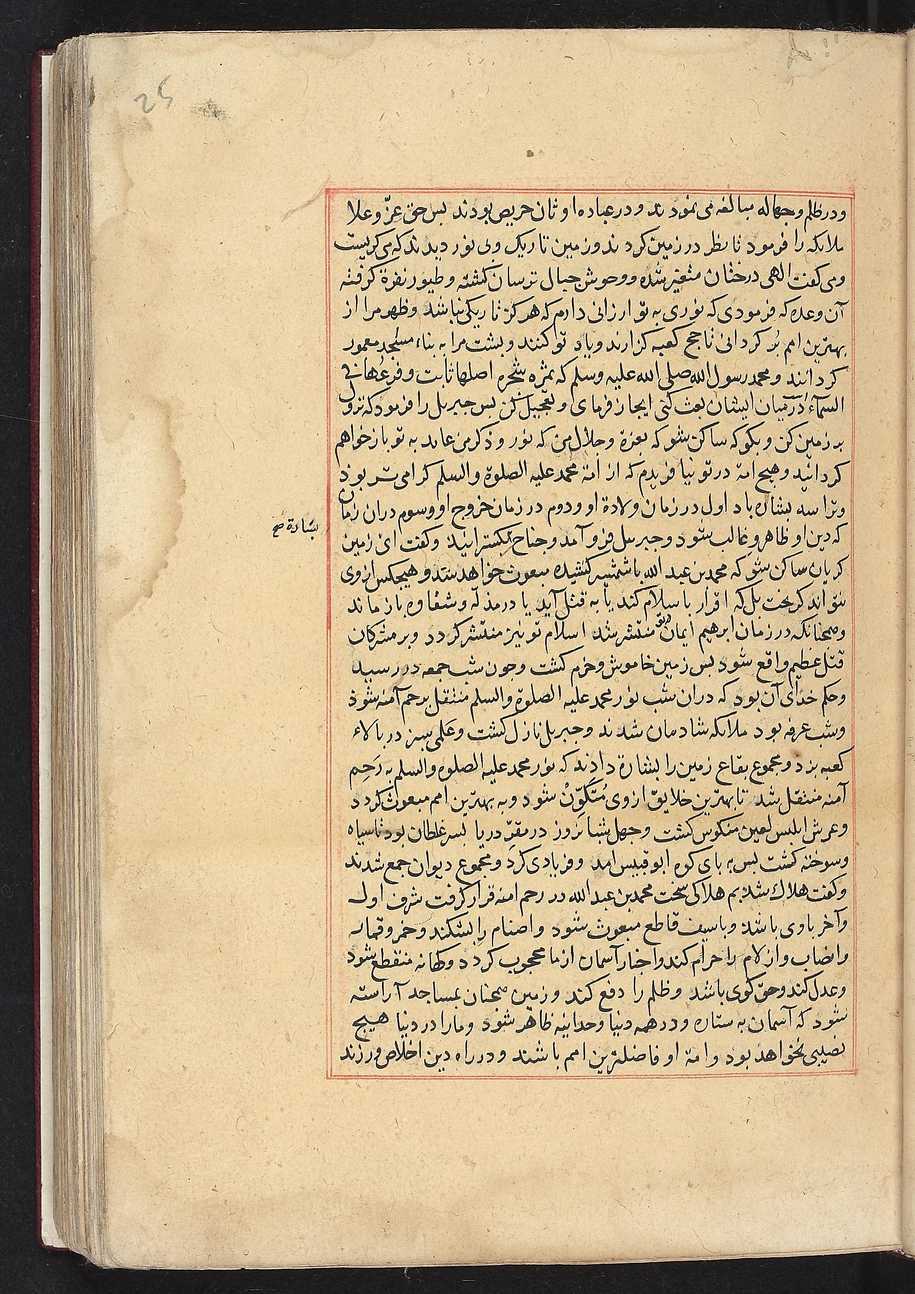 25
ودر ظلم وجهاله مبالغه می نمودند ودر عباده اوثان حریص بودند بس حق عزّ وعلا
ملایکه را فرمود تا نظر در زمین کردند وزمین تاریک وبی نور دیدند که می کریست
ومی کفت الهی درختان متغیر شده ووحوش جبال ترسان کشته وطیور نفرة کرفته
آن وعده که فرمودی که نوری به تو ارزانی دارم که هرکز تاریکی نباشد وظهر مرا از
بهترین امم بُر کردانی تا حج کعبه کزارند ویاد تو کنند وبشت مرا به بناء مسجد معمور
کردانند ومحمد رسول الله صلی الله علیه وسلم که ثمره شجره اصلها ثابت وفرعها فی
السمآء در میان ایشان بعث کنی ایجاز فرمای وتعجیل کن بس جبریل را فرمود که نزول
بر زمین کن وبکو که ساکن شو که بعزة وجلال من که نور وذکر من عاید به تو باز خواهم
کردانید وهیچ امة در تو نیافریدم که از امة محمد علیه الصلوة والسلم کرامی تر بوذ
وترا سه بشاره باد اول در زمان ولادة او ودوم در زمان خروج او وسوم دران زمان
که دین او ظاهر وغالب شود وجبریل فرو آمد وجناح بکسترانید وکفت ای زمین
بشارة صح
کریان ساکن شو که محمد بن عبد الله با شمشیر کشیده مبعوث خواهد شد وهیجکس از وی
نتواند کریخت بل که اقرار باسلام کند یا به قتل آید یا در مذلة وشقاوه باز ماند
وهمجنانکه در زمان ابرهیم ایمان تو منتشر شد اسلام تو نیز منتشر کردد وبر مشرکان
قتل عظیم واقع شود بس زمین خاموش وخرم کشت وجون شب جمعه در رسید
وحکم خدای آن بود که دران شب نور محمد علیه الصلوة والسلم منتقل برحم آمنه شوذ
وشب عرفه بود ملایکه شادمان شدند وجبریل نازل کشت وعلمی سبز در بالاء
کعبه بزد ومجموع بقاع زمین را بشارة داذند که نور محمد علیه الصلوة والسلم به رَحِم
آمنه منتقل شد تا بهترین خلایق از وی مُتَکَوِّن شود وبه بهترین امم مبعوث کردد
وعرش ابلیس لعین منکوس کشت وجهل شبانروز در مقرّ دریا بسر غلطان بود تا سیاه
وسوخته کشت بس به بای کوه ابو قبیس امد وفریادی کرد ومجموع دیوان جمع شدند
وکفت هلاک شدیم هلاکی سخت محمد بن عبد الله در رحم امنه قرار کرفت شرف اول
وآخر با وی باشد وباسیف قاطع مبعوث شود واصنام را بشکند وخمر وقمار
وانصاب وازلام را حرام کند واخبار آسمان از ما محجوب کردد وکهانه منقطع شود
وعدل کند وحق کوی باشد وظلم را دفع کند وزمین همجنان بمساجد آراسته
شود که آسمان به ستاره ودر همه دنیا وحدانیه ظاهر شود ومارا در دنیا هیچ
نصیبی نخواهد بود وامة او فاضلترین امم باشند ودر راه دین اخلاص ورزند